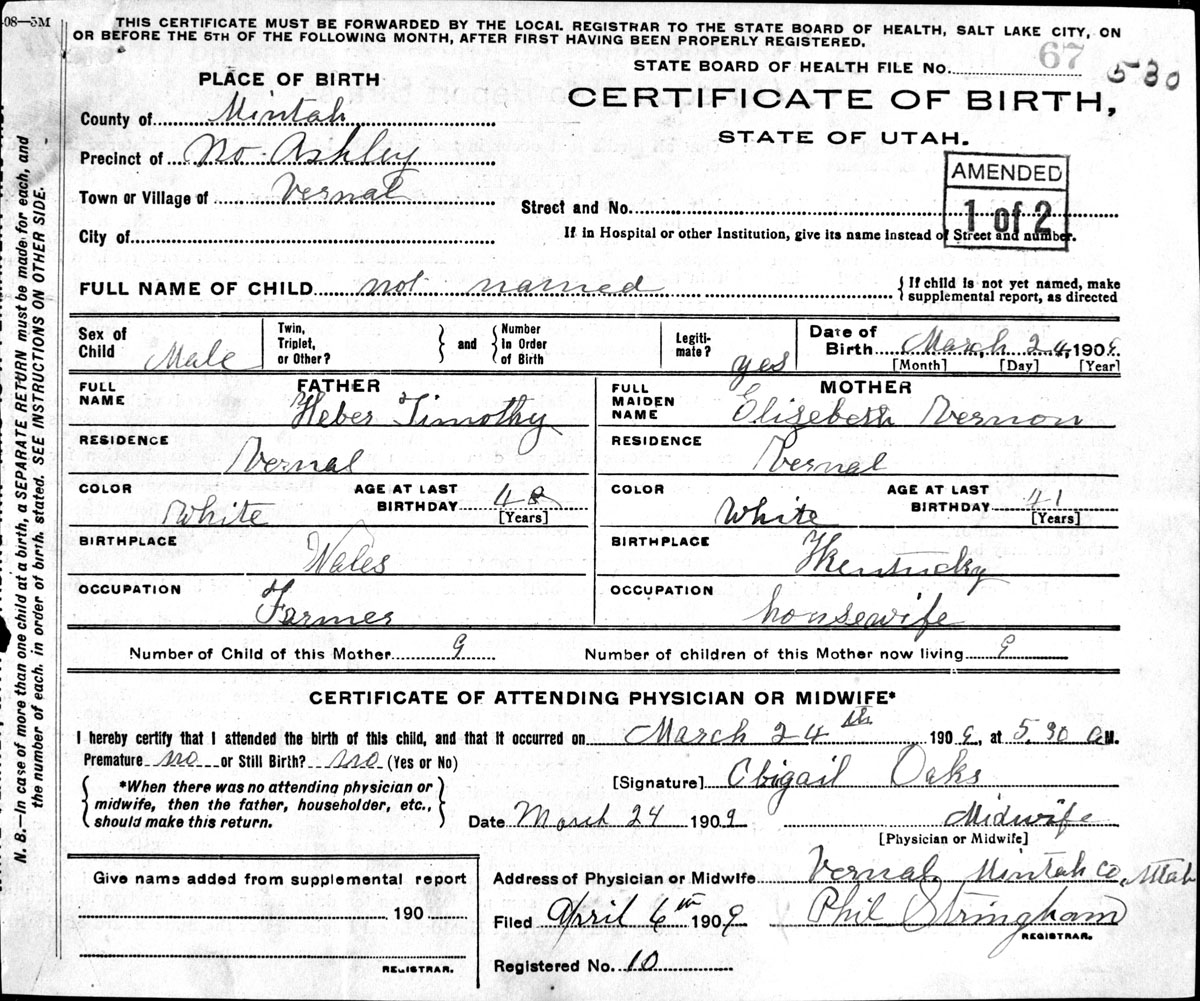 -08—5M
THIS CERTIFICATE MUST BE FORWARDED BY THE LOCAL REGISTRAR TO THE STATE BOARD OF HEALTH, SALT LAKE CITY, ON
OR BEFORE THE 5TH OF THE FOLLOWING MONTH, AFTER FIRST HAVING BEEN PROPERLY REGISTERED.
STATE BOARD OF HEALTH FILE No. 67 530
PLACE OF BIRTH
CERTIFICATE OF BIRTH,
STATE OF UTAH.
County of Uintah
Precinct of No. Ashley
Town or Village of Vernal
City of
AMENDED
1 of 2
Street and No.
If in Hospital or other Institution, give its name instead of Street and number.
FULL NAME OF CHILD not named
{ If child is not yet named, make
supplemental report, as directed
Sex of Child Male
Twin, Triplet, or Other? } and { Number In Order of Birth
Legiti-mate? yes
Date of Birth March 24, 1909.
[Month] [Day] [Year]
FATHER
FULL NAME Heber Timothy
RESIDENCE Vernal
COLOR White AGE AT LAST BIRTHDAY 48 [Years]
BIRTHPLACE Wales
OCCUPATION Farmer
MOTHER
FULL MAIDEN NAME Elizebeth Vernon
RESIDENCE Vernal
COLOR White AGE AT LAST BIRTHDAY 41 [Years]
BIRTHPLACE Kentucky
OCCUPATION housewife
Number of Child of this Mother 9 Number of children of this Mother now living 9
CERTIFICATE OF ATTENDING PHYSICIAN OR MIDWIFE*
I hereby certify that I attended the birth of this child, and that it occurred on March 24th 1909, at 5.30 a.M.
Premature no or Still Birth? no (Yes or No)
{ *When there was no attending physician or
midwife, then the father, householder, etc.,
should make this return. }
[Signature] Abigail Oaks
Date March 24 1909 Midwife
[Physician or Midwife]
Give name added from supplemental report
190
REGISTRAR.
Address of Physician or Midwife Vernal Uintah Co. Utah
Filed April 6th 1909 Phil Stringham
REGISTRAR.
Registered No. 10
N. B.—In case of more than one child at a birth, a SEPARATE RETURN must be made for each, and
the number of each, in order of birth, stated. SEE INSTRUCTIONS ON OTHER SIDE.